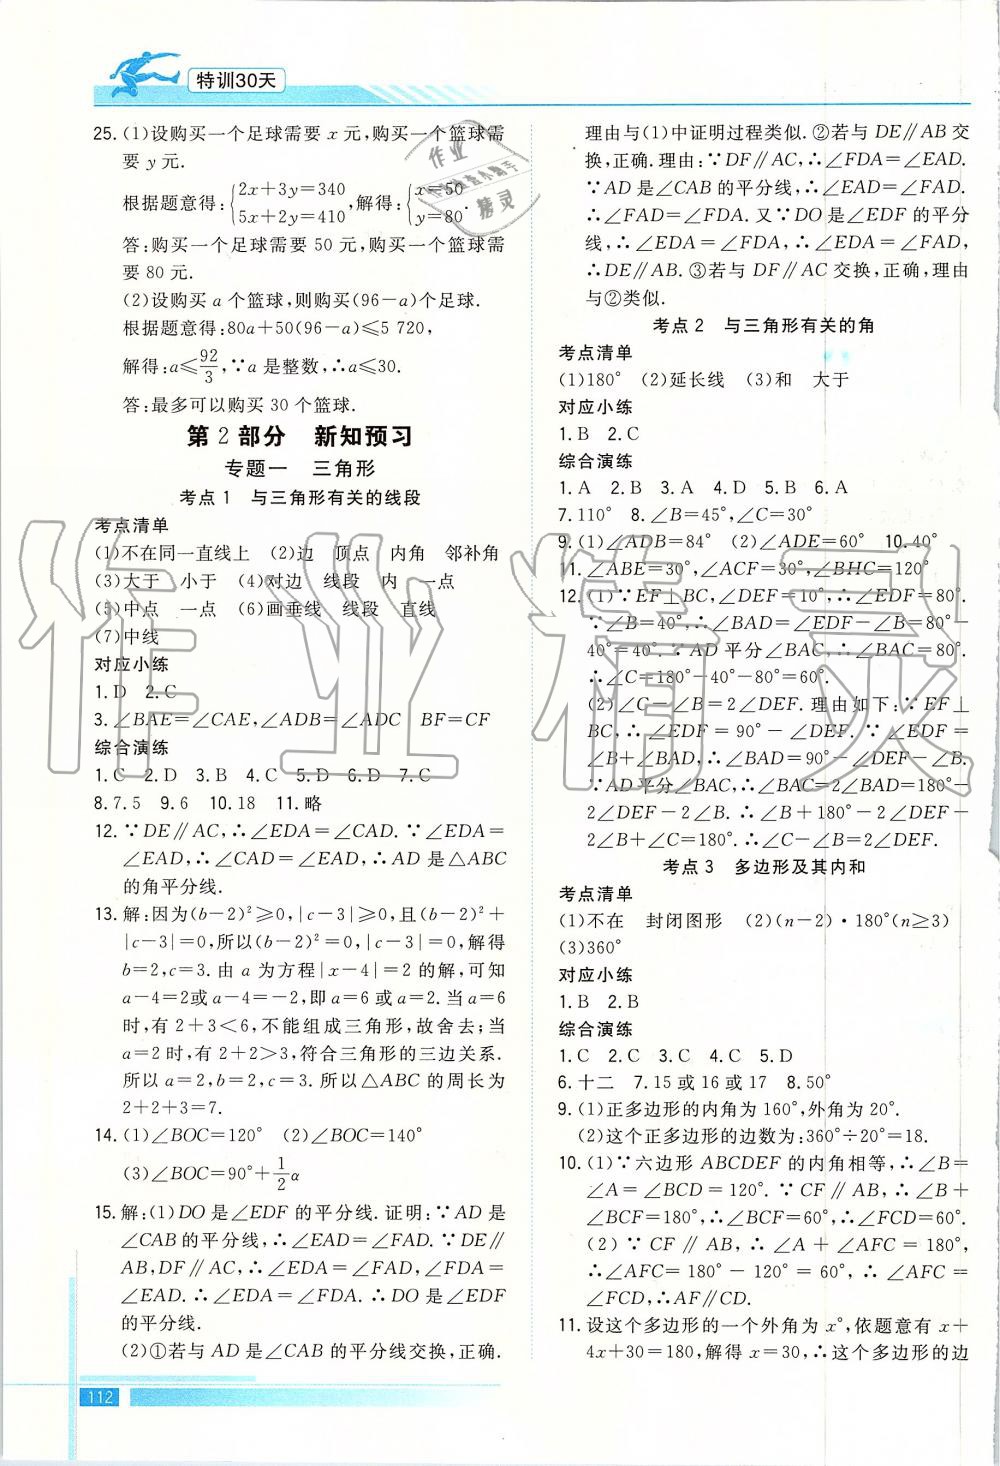 特训30天
25. (1)设购买一个足球需要 x 元,购买一个篮球需
要 y 元.
根据题意得:{2x+3y=340 5x+2y=410,解得:{x=50 y=80.
答:购买一个足球需要 50 元,购买一个篮球需
要 80 元.
(2)设购买 a 个篮球,则购买(96-a)个足球.
根据题意得:80a+50(96-a)≤5 720,
解得:a≤92/3,∵a 是整数,∴a≤30.
答:最多可以购买 30 个篮球.
第 2 部分 新知预习
专题一 三角形
考点 1 与三角形有关的线段
考点清单
(1)不在同一直线上 (2)边 顶点 内角 邻补角
(3)大于 小于 (4)对边 线段 内 一点
(5)中点 一点 (6)画垂线 线段 直线
(7)中线
对应小练
1. D 2. C
3. ∠BAE=∠CAE,∠ADB=∠ADC BF=CF
综合演练
1. C 2. D 3. B 4. C 5. D 6. D 7. C
8. 7.5 9. 6 10. 18 11. 略
12. ∵DE∥AC,∴∠EDA=∠CAD.∵∠EDA=
∠EAD,∴∠CAD=∠EAD,∴AD 是△ABC
的角平分线.
13. 解:因为(b-2)²≥0,|c-3|≥0,且(b-2)²+
|c-3|=0,所以(b-2)²=0,|c-3|=0,解得
b=2,c=3. 由 a 为方程|x-4|=2 的解,可知
a-4=2或 a-4=-2,即 a=6 或 a=2. 当 a=6
时,有 2+3<6,不能组成三角形,故舍去;当
a=2 时,有 2+2>3,符合三角形的三边关系.
所以 a=2,b=2,c=3. 所以△ABC 的周长为
2+2+3=7.
14. (1)∠BOC=120° (2)∠BOC=140°
(3)∠BOC=90°+1/2α
15. 解:(1)DO 是∠EDF 的平分线.证明:∵AD 是
∠CAB的平分线,∴∠EAD=∠FAD.∵DE∥
AB,DF∥AC,∴∠EDA=∠FAD,∠FDA=
∠EAD.∴∠EDA=∠FDA.∴DO 是∠EDF
的平分线.
(2)①若与 AD 是∠CAB 的平分线交换,正确.
理由与(1)中证明过程类似.②若与 DE∥AB 交
换,正确.理由:∵DF∥AC,∴∠FDA=∠EAD.
∵AD 是∠CAB 的平分线,∴∠EAD=∠FAD.
∴∠FDA=∠FAD. 又∵DO 是∠EDF 的平分
线,∴∠EDA=∠FDA,∴∠EDA=∠FAD,
∴DE∥AB. ③若与 DF∥AC 交换,正确,理由
与②类似.
考点 2 与三角形有关的角
考点清单
(1)180° (2)延长线 (3)和 大于
对应小练
1. B 2. C
综合演练
1. A 2. B 3. A 4. D 5. B 6. A
7. 110° 8. ∠B=45°,∠C=30°
9. (1)∠ADB=84° (2)∠ADE=60° 10. 40°
11. ∠ABE=30°,∠ACF=30°,∠BHC=120°
12. (1)∵EF⊥BC,∠DEF=10°,∴∠EDF=80°.
∵∠B=40°,∴∠BAD=∠EDF-∠B=80°-
40°=40°.∵AD 平分∠BAC,∴∠BAC=80°.
∴∠C=180°-40°-80°=60°.
(2)∠C-∠B=2∠DEF.理由如下:∵EF⊥
BC,∴∠EDF=90°-∠DEF.∵∠EDF=
∠B+∠BAD,∴∠BAD=90°-∠DEF-∠B.
∵AD平分∠BAC,∴∠BAC=2∠BAD=180°-
2∠DEF-2∠B.∴∠B+180°-2∠DEF-
2∠B+∠C=180°.∴∠C-∠B=2∠DEF.
考点 3 多边形及其内和
考点清单
(1)不在 封闭图形 (2)(n-2)·180°(n≥3)
(3)360°
对应小练
1. B 2. B
综合演练
1. C 2. C 3. C 4. C 5. D
6. 十二 7. 15 或 16 或 17 8. 50°
9. (1)正多边形的内角为 160°,外角为 20°.
(2)这个正多边形的边数为:360°÷20°=18.
10. (1)∵六边形 ABCDEF 的内角相等,∴∠B=
∠A=∠BCD=120°.∵CF∥AB,∴∠B+
∠BCF=180°,∴∠BCF=60°,∴∠FCD=60°.
(2)∵CF∥AB,∴∠A+∠AFC=180°,
∴∠AFC=180°-120°=60°,∴∠AFC=
∠FCD,∴AF∥CD.
11. 设这个多边形的一个外角为 x°,依题意有 x+
4x+30=180,解得 x=30,∴这个多边形的边
112
作业精灵
作业
精灵